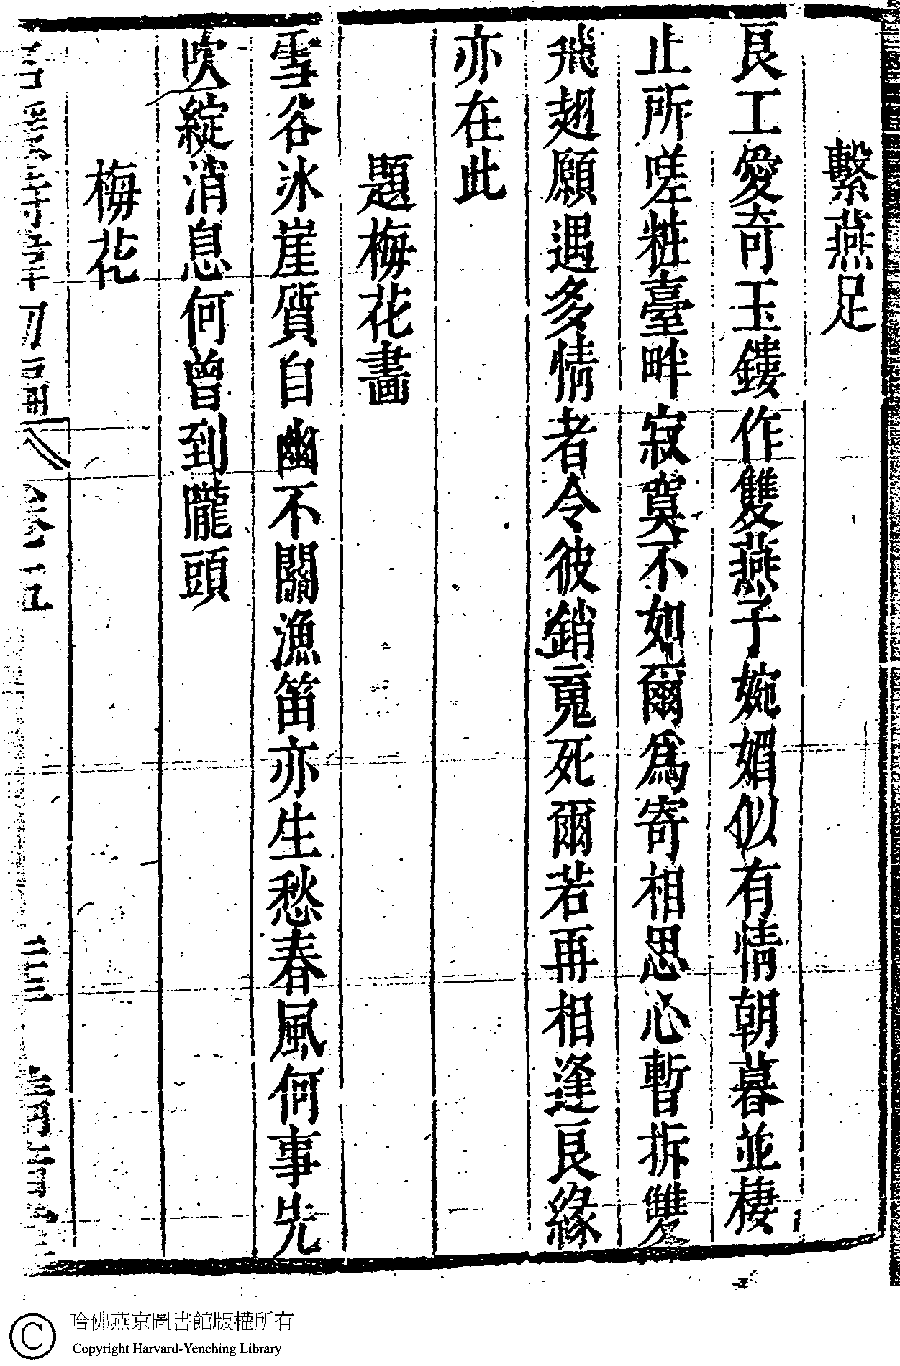 繫燕足
良工愛奇玉鏤作雙燕子婉媚似有情朝暮並棲
止所嗟粧臺畔寂寞不如爾爲寄相思心暫拆雙
飛翅願遇多情者令彼銷䰟死爾若再相逢良緣
亦在此
題梅花畫
雪谷冰崖質自幽不關漁笛亦生愁春風何事先
吹綻消息何曾到隴頭
梅花
卷五
哈佛燕京圖書館版權所有
Copyright Harvard-Yenching Library